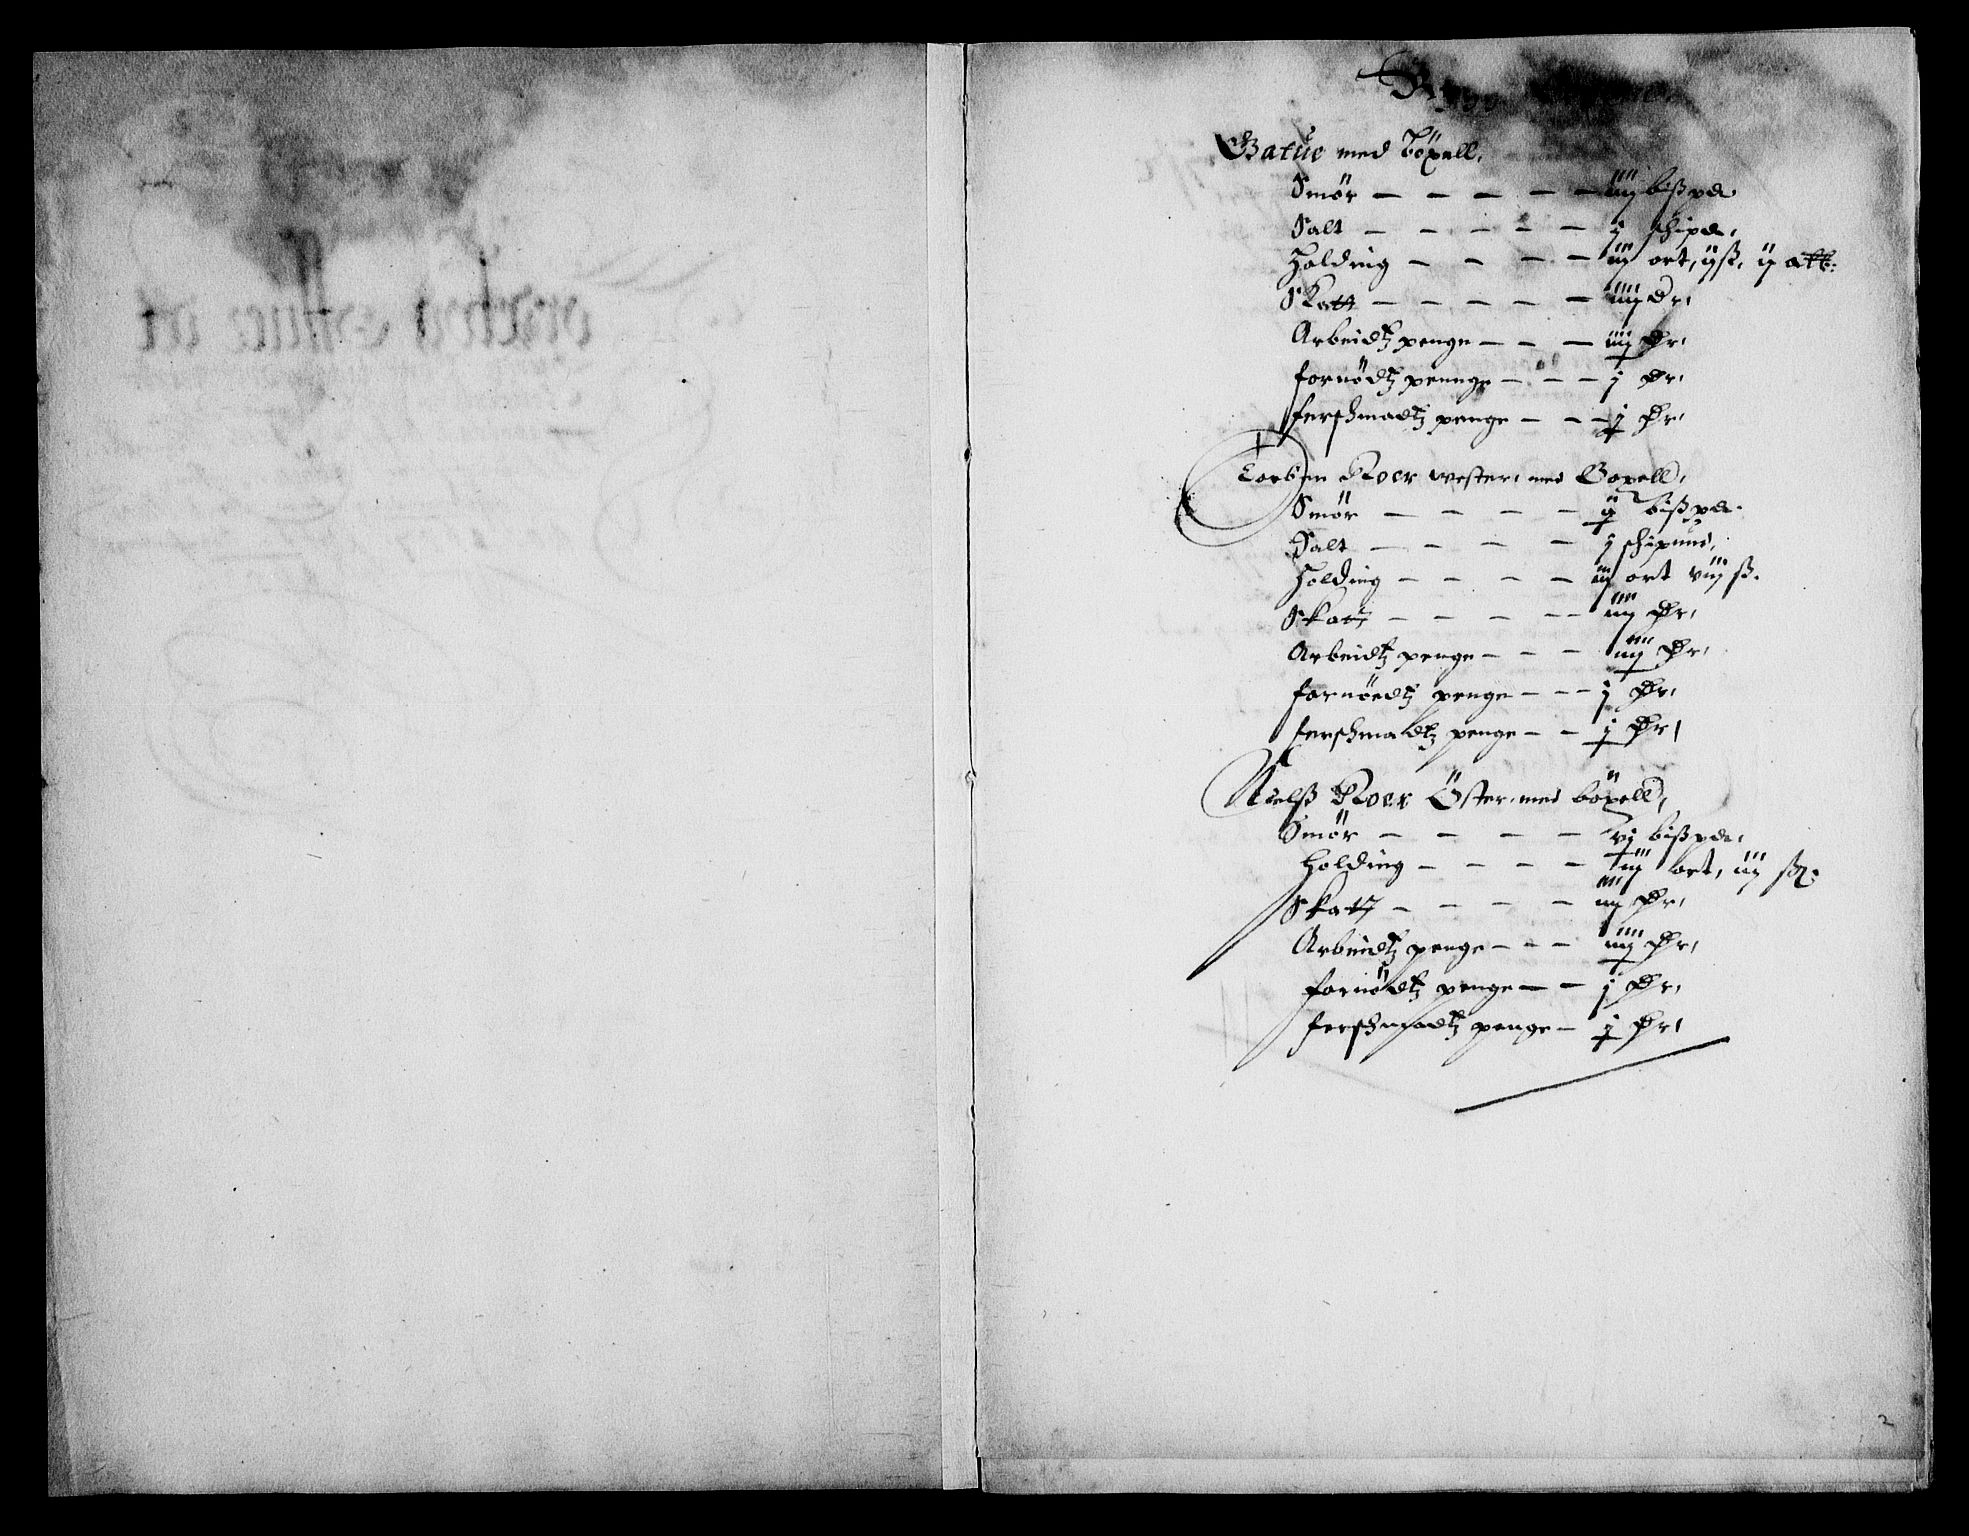 Batue med böxell,
Smör — — — — — iiij bißpd
Salt — — — — — j skipd,
Holding — — — — iij ort, ijß, ij alb:
Skatt — — — — — iiij dr,
Arbeidtz penge — — — iiij dr,
fornödtz pennge — — — j dr,
ferskmadtz penge — — — j dr,
Torbien Roer wester, med Boxell,
Smör — — — — ij bißpd.
Salt — — — — j skipund,
Holding — — — — iij ort viijß.
Skatt — — — — — iiij dr,
Arbeidtz penge — — — iiij dr,
fornöedtz penge — — — j dr,
ferskmadtz penge — — j dr,
Nielß Roer Öster, med böxell,
Smör — — — — vj bißpd,
Holding — — — — iij ort, iij ß:
Skatt — — — — iiij dr,
Arbeidtz penge — — — iiij dr,
fornödtz penge — — j dr,
ferskmadtz penge — j dr,
2